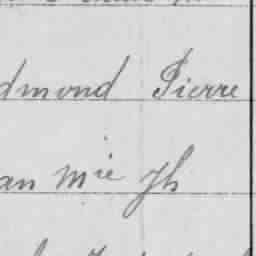 dmond Pierre
an Mie Jh